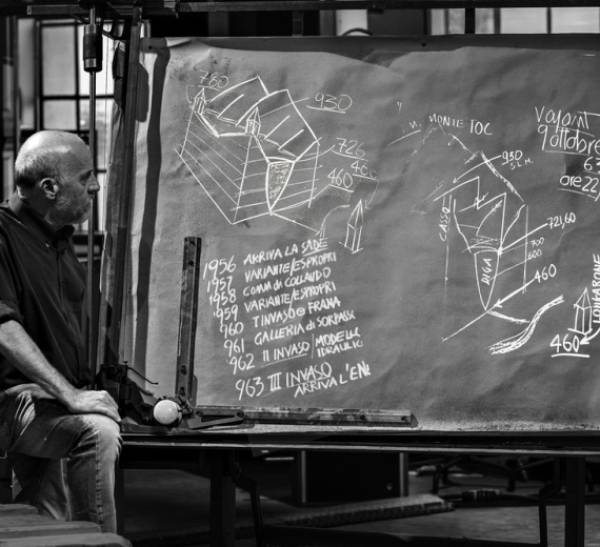 780
930
726
460
460
1956 ARRIVA LA SADE
1957 VARIANTE/ESPROPRI
1958 COMM. di COLLAUDO
959 VARIANTE/ESPROPRI
960 I INVASO FRANA
961 GALLERIA di SORPASSO
962 II INVASO / MODELLO IDRAULIC
963 III INVASO
ARRIVA L'ENE
MONTE TOC
930
S.L.M.
CASSO
721,60
700
600
DIGA
460
Vajont
9 ottobre
63
ore 22,
LONGARONE
460